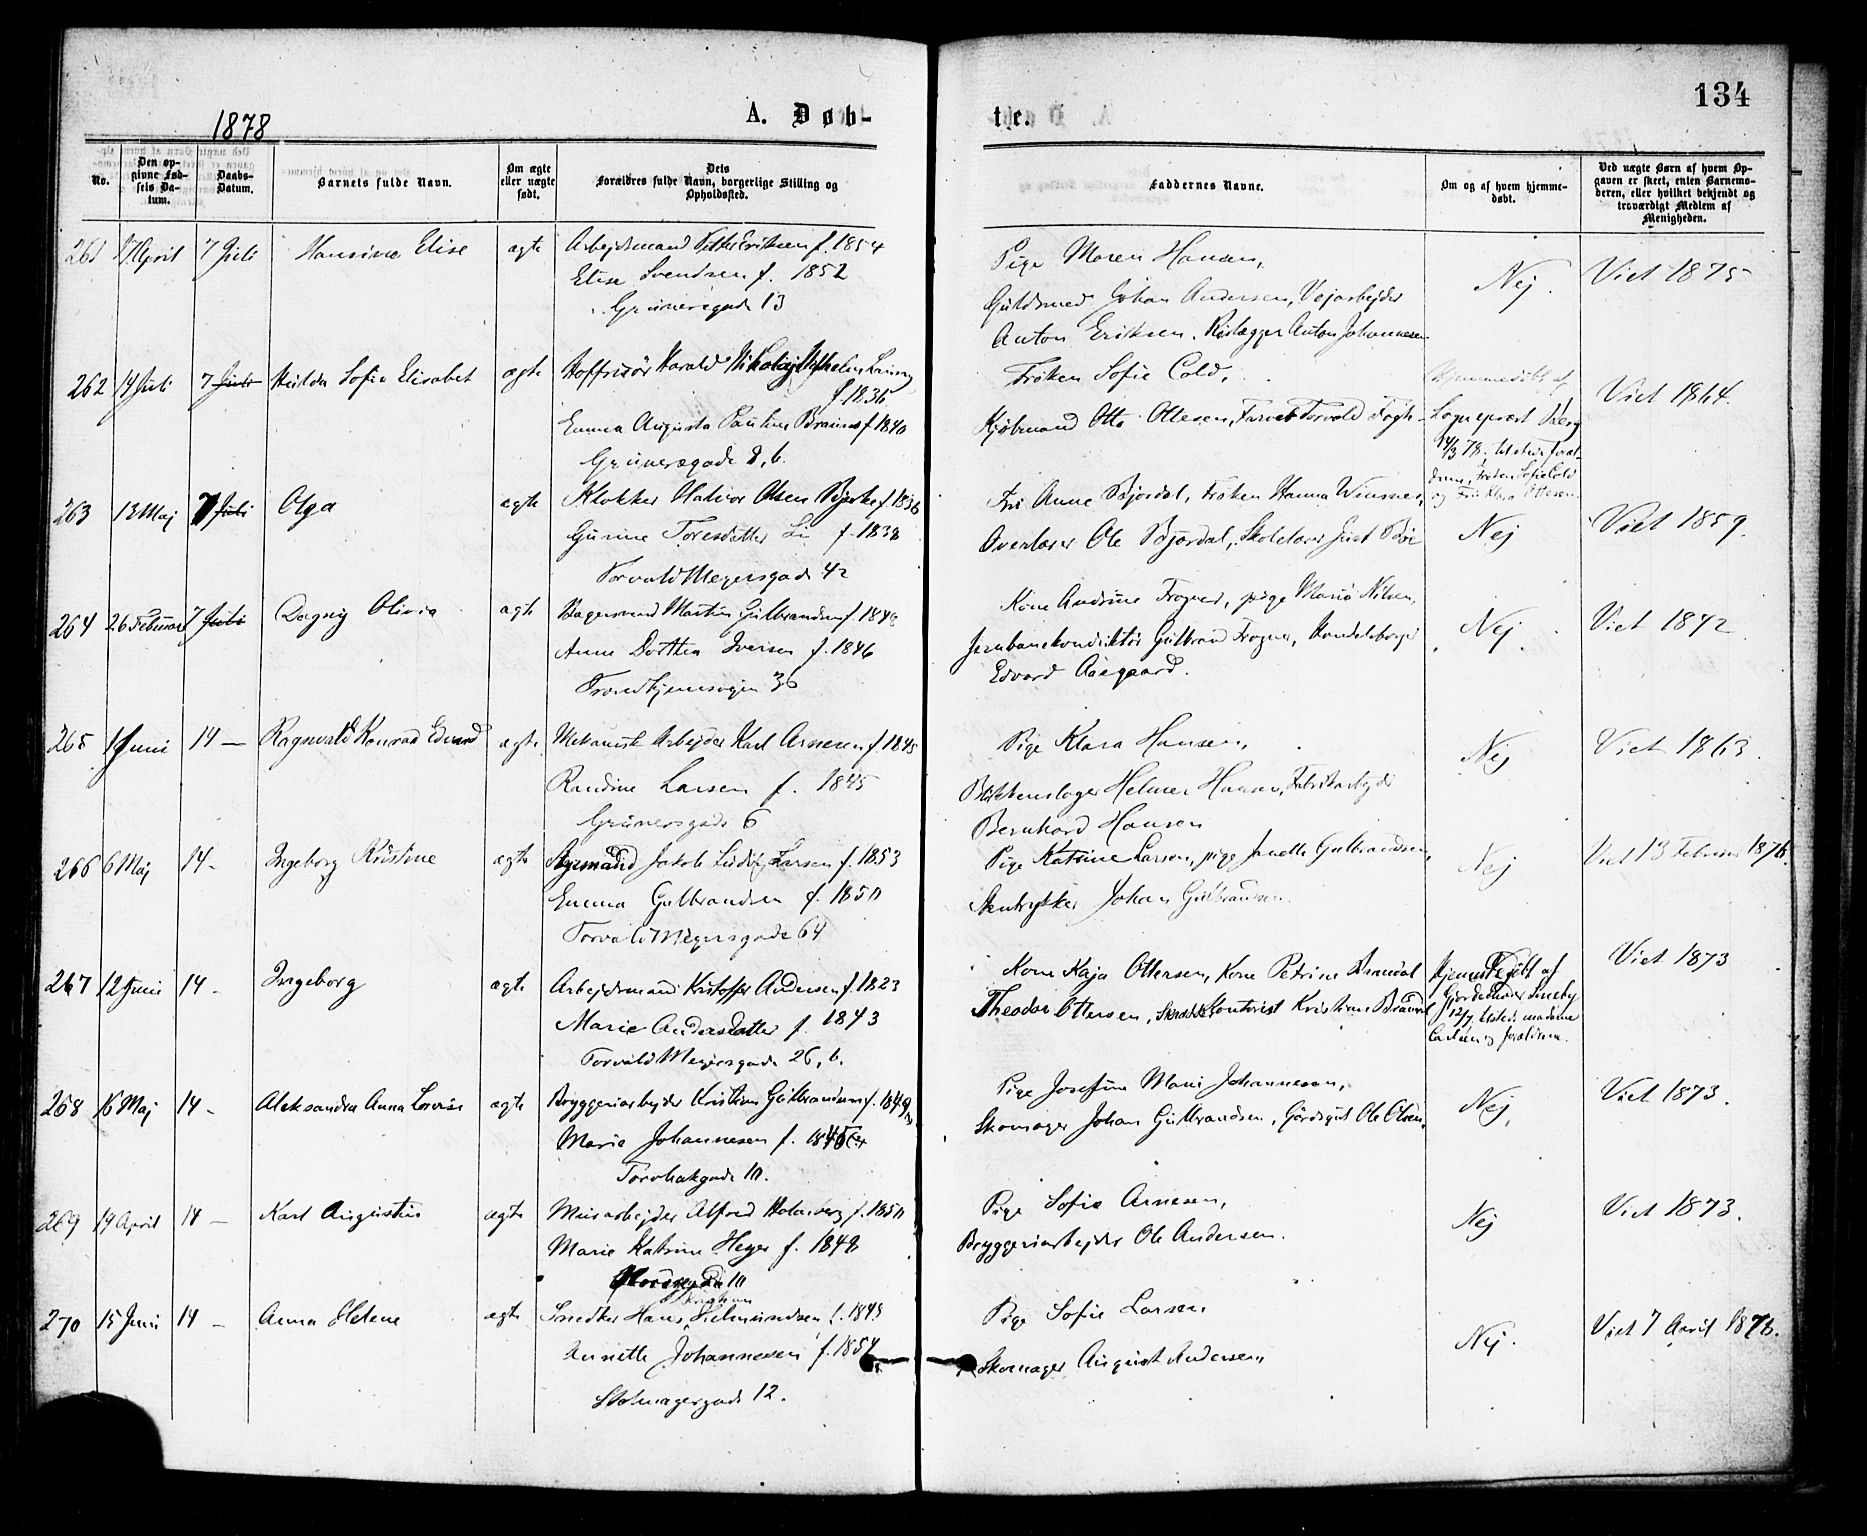 134
1878
A. Døb-
te.
No.
Den op-
givne Fød-
sels Da-
tum.
Daabs-
Datum.
Barnets fulde Navn.
Om ægte
eller uægte
født.
Dets
Forældres fulde Navn, borgerlige Stilling og
Opholdssted.
Faddernes Navne.
Om og af hvem hjemme-
døbt.
Ved uægte Børn af hvem Op-
gaven er skeet, enten Barnemo-
deren, eller hvilket bekjendt og
troværdigt Medlem af
Menigheden.
261 17 April 7 Juli Hansine Elise ægte Arbejdsmand Eriksen f. 1854
Elise Svendsen f. 1852
Grünersgade 13
Pige Maren Hansen,
Guldsmed Johan Andersen, Vejarbejder
Anton Eriksen, Rørlægger Anton Johannesen
Nej.
Viet 1875
262 14 Juli 7 Juli Hulda Sofie Elisabet ægte Hoffrisör Harald Nikolaj
f. 1836
Emma Augusta Pauline f 1840
Grünersgade 8, b.
Frøken Sofie Cold,
Kjøbmand Otto Ottesen, Torvald Fogh
Hjemmedøbt af
Sogneprest
Frøken Sofie Cold
og Frk Klara Ottesen
Viet 1864.
263 13 Maj 7 Juli Olga ægte Klokker Halvor Olsen Bjerke f 1836
Gunine Toresdatter Li f. 1838
Torvald Meyersgade 42
Anne Bjørdal, Frøken Hanna Winsnes,
Overlærer Ole Bjørdal, Skolelærer Just
Nej
Viet 1859.
264 26 Februar 7 Juli Dagny Olivia ægte Bagersvend Martin Gulbrandsen f. 1848
Anne Dorthea Iversen f. 1846
Trondhjemsvejen 36
Kone Andrine Frogner, pige Maria Nilsen,
Jernbanekonduktør Gulbrand Frogner, Handelsborger
Edvard Aasgaard.
Nej.
Viet 1872
265 1 Juni 14 — Ragnvald Konrad Edvard ægte Mekanisk Arbejder Karl Arnesen f. 1845
Randine Larsen f. 1845
Grünersgade 6
Pige Klara Hansen,
Blikkenslager Helmer Hansen, Fabrikarbejder
Bernhard Hansen
Nej
Viet 1863.
266 6 Maj 14 - Ingeborg Kristine ægte Styrmand Jakob Ludvig Larsen f. 1853
Emma Gulbrandsen f. 1850
Torvald Meyersgade 64
Pige Katrine Larsen, pige Janette Gulbrandsen,
Stentrykker Johan Gulbrandsen.
Nej
Viet 13 Februar 1876.
267 12 Juni 14 - Ingeborg ægte Arbejdsmand Kristoffer Andersen f. 1823
Marie Andersdatter f. 1843
Torvald Meyersgade 26, b.
Kone Kaja Ottersen, Kone Petrine Brandal
Theodor Ottersen, Kontorist Kristian
Hjemmedøbt af
Gjordemoder
12/7
forældrene.
Viet 1873
268 16 Maj 14 - Aleksandra Anna Lovise ægte Bryggeriarbejder Kristian Gulbrandsen f. 1849
Marie Johannesen f. 1845
10.
Pige Josefine Marie Johannesen,
Skomager Johan Gulbrandsen, Gårdsgut Ole Olsen,
Nej,
Viet 1873.
269 19 April 14 — Karl Augustin ægte Murarbejder Alfred Holmberg f. 1850
Marie Katrine Heyer f. 1848
10
Pige Sofie Arnesen,
Bryggeriarbejder Ole Andersen.
Nej
Viet 1873.
270 15 Juni 14 — Anna Helene ægte Snedker Hans Kristian f. 1849
Annette Johannesen f. 1854
12.
Pige Sofie Larsen,
Skomager August Andersen,
Nej.
Viet 7 April 1878.